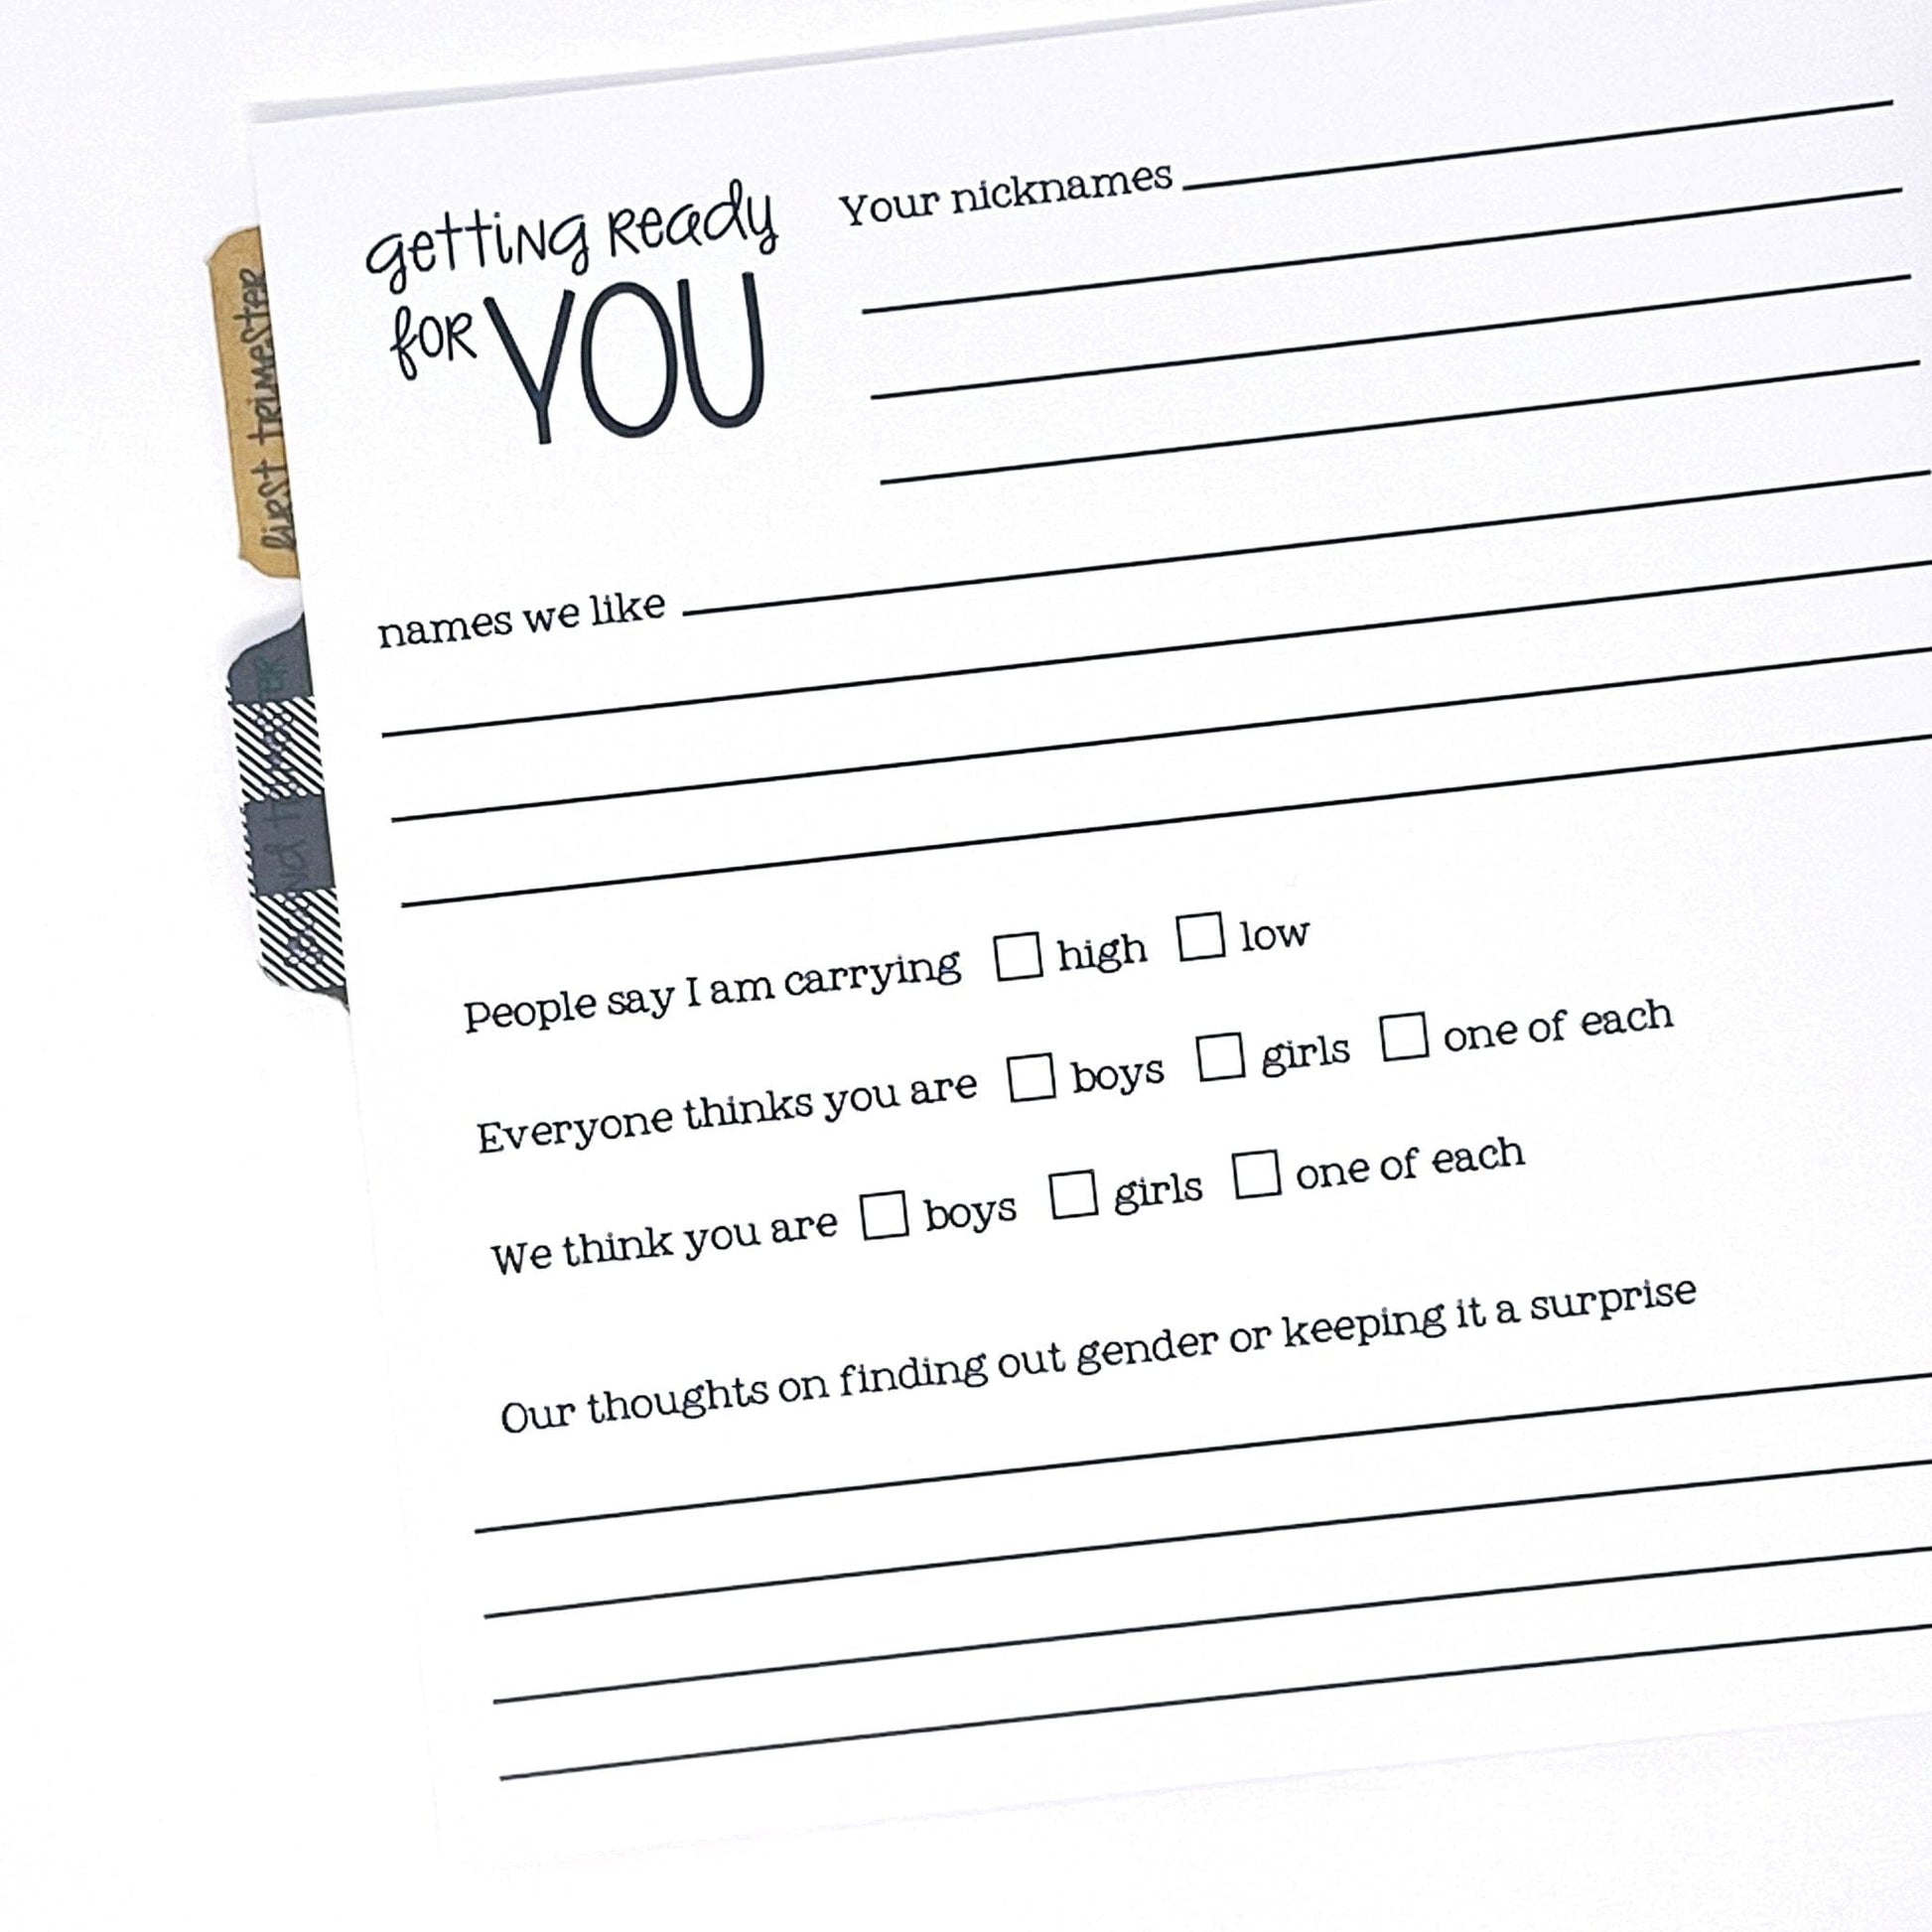 getting Ready
for YOU
Your nicknames
names we like
People say I am carrying high low
Everyone thinks you are boys girls one of each
We think you are boys girls one of each
Our thoughts on finding out gender or keeping it a surprise
first trimester